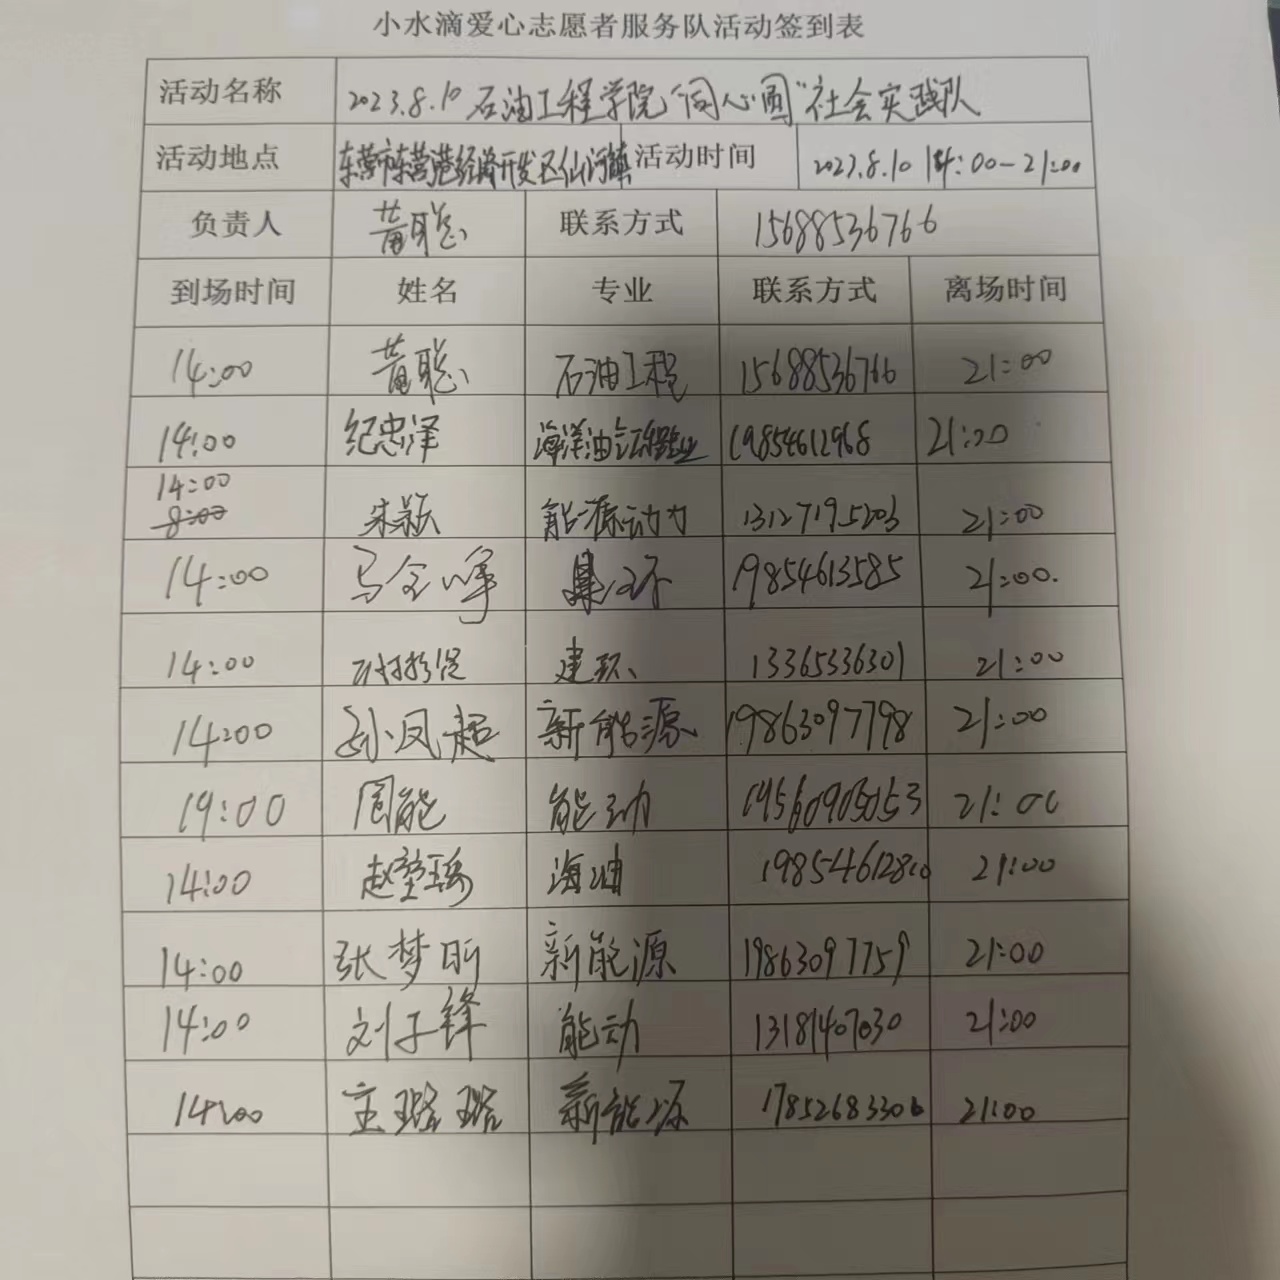 小水滴爱心志愿者服务队活动签到表
活动名称 2023.8.10 石油工程学院"同心圆"社会实践队
活动地点 东营市东营港经济开发区仙河镇 活动时间 2023.8.10 14:00-21:00
负责人 黄聪 联系方式 15688536766
到场时间 姓名 专业 联系方式 离场时间
14:00 黄聪 石油工程 15688536766 21:00
14:00 纪忠泽 海洋油气工程专业 19854612968 21:00
14:00
8:00 朱颖 能源动力 13127195203 21:00
14:00 马金峰 19854613585 21:00.
14:00 建环 13365336301 21:00
14:00 孙凤超 新能源 19863097798 21:00
19:00 周能 能动 21:00
14:00 海油 19854612810 21:00
14:00 张梦昕 新能源 19863097759 21:00
14:00 刘子锋 能动 13181407030 21:00
14:00 王璐璐 新能源 17852683306 21:00